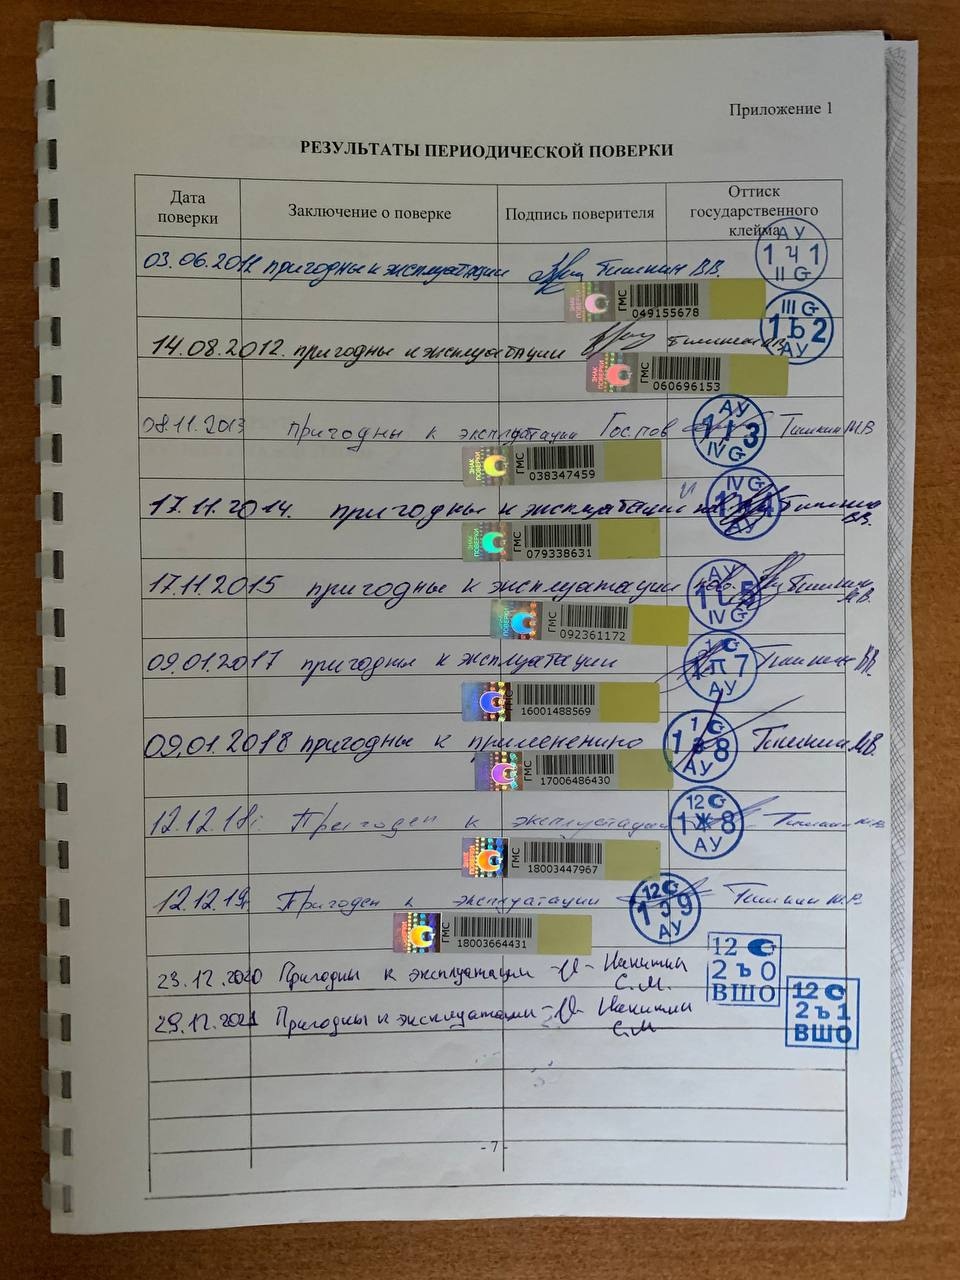 Приложение 1
РЕЗУЛЬТАТЫ ПЕРИОДИЧЕСКОЙ ПОВЕРКИ
Дата поверки Заключение о поверке Подпись поверителя Оттиск государственного клейма
АУ
03.06.2011 пригодны к эксплуатации Тишкин В.В. 1 Ч 1
II G
ЗНАК ПОВЕРКИ ГМС 049155678
III G
14.08.2012. пригодны к эксплуатации 1 Ъ 2
АУ
ЗНАК ПОВЕРКИ ГМС 060696153
АУ
08.11.2013 пригодны к эксплуатации Госпов 3 Тишкин М.В
IV G
ЗНАК ПОВЕРКИ ГМС 038347459
IV G
17.11.2014. пригодны к эксплуатации Тишкин В.В.
АУ
ЗНАК ПОВЕРКИ ГМС 079338631
АУ
17.11.2015 пригодны к эксплуатации 5 Тишкин М.В.
IV G
ГМС 092361172
09.01.2017 пригодны к эксплуатации 1 П 7 Тишкин В.В.
АУ
16001488569
1
09.01.2018 пригодны к применению 8 Тишкин М.В.
АУ
ГМС 17006486430
12
12.12.18г. Пригоден к эксплуатации 1 Ж 8 Тишкин М.В
АУ
ЗНАК ПОВЕРКИ ГМС 18003447967
12
12.12.19г. Пригоден к эксплуатации 1 9 Тишкин М.В.
АУ
ЗНАК ПОВЕРКИ ГМС 18003664431
12
23.12.2020 Пригодны к эксплуатации Никитин С.М. 2 ъ 0
ВШО
12
29.12.2021 Пригодны к эксплуатации Никитин С.М 2 ъ 1
ВШО
- 7 -